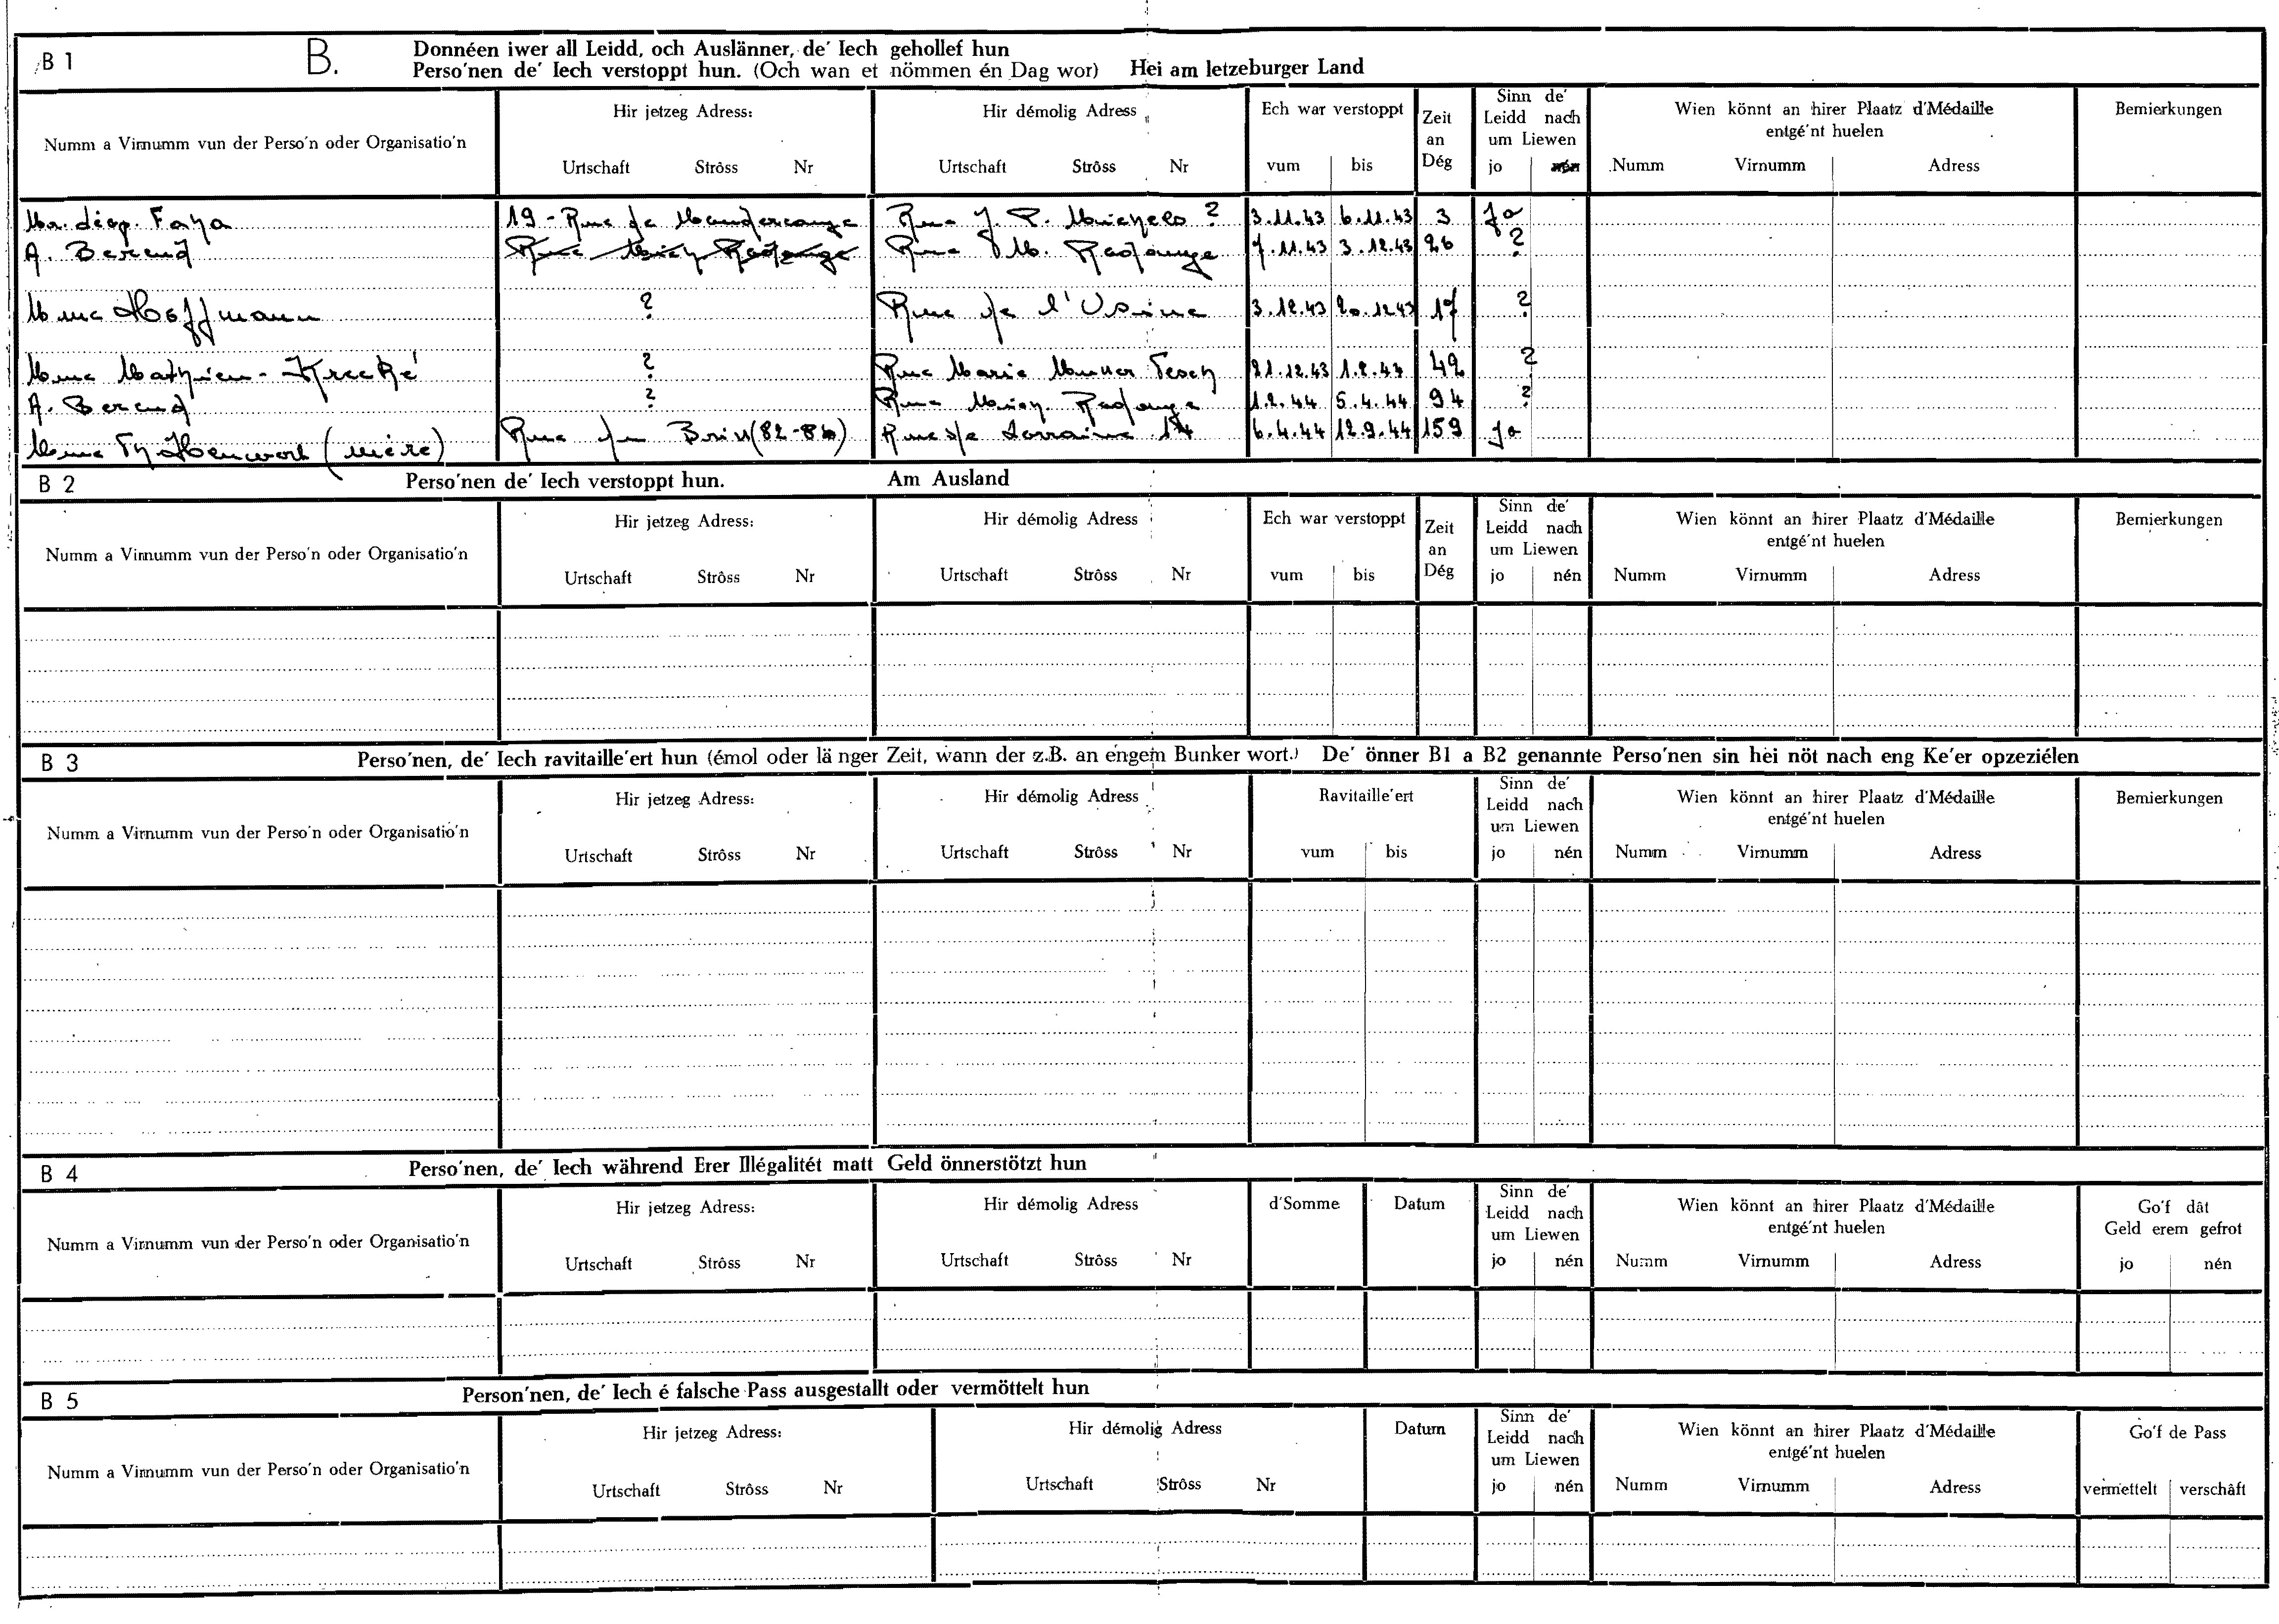 B 1 B. Donnéen iwer all Leidd, och Auslänner, de' Iech gehollef hun
Perso'nen de' Iech verstoppt hun. (Och wan et nömmen én Dag wor) Hei am letzeburger Land
Numm a Virnumm vun der Perso'n oder Organisatio'n
Hir jetzeg Adress:
Urtschaft Strôss Nr
Hir démolig Adress
Urtschaft Strôss Nr
Ech war verstoppt
vum bis
Zeit
an
Dég
Sinn de'
Leidd nach
um Liewen
jo nén
Wien könnt an hirer Plaatz d'Médaille
entgé'nt huelen
Numm Virnumm Adress
Bemierkungen
Faya 19 - Rue de Mondercange Rue J. P. Michels ? 3.11.43 6.11.43 3 Ja
A. Berend Rue M. Rodange 7.11.43 3.12.43 26 ?
Mme Hoffmann ? Rue de l'Usine 3.12.43 20.12.43 17 ?
Mme Mathieu - Krecké ? Rue Marie Muller Tesch 21.12.43 1.2.44 42 ?
A. Berend ? Rue Mich. Rodange 1.2.44 5.4.44 94 ?
Mme (mère) Rue du Brill (82-86) Rue de Lorraine 6.4.44 12.9.44 159 Ja
B 2 Perso'nen de' Iech verstoppt hun. Am Ausland
Numm a Virnumm vun der Perso'n oder Organisatio'n
Hir jetzeg Adress:
Urtschaft Strôss Nr
Hir démolig Adress
Urtschaft Strôss Nr
Ech war verstoppt
vum bis
Zeit
an
Dég
Sinn de'
Leidd nach
um Liewen
jo nén
Wien könnt an hirer Plaatz d'Médaille
entgé'nt huelen
Numm Virnumm Adress
Bemierkungen
B 3 Perso'nen, de' Iech ravitaille'ert hun (émol oder länger Zeit, wann der z.B. an engem Bunker wort.) De' önner B1 a B2 genannte Perso'nen sin hei nöt nach eng Ke'er opzeziélen
Numm a Virnumm vun der Perso'n oder Organisatio'n
Hir jetzeg Adress:
Urtschaft Strôss Nr
Hir démolig Adress
Urtschaft Strôss Nr
Ravitaille'ert
vum bis
Sinn de'
Leidd nach
um Liewen
jo nén
Wien könnt an hirer Plaatz d'Médaille
entgé'nt huelen
Numm Virnumm Adress
Bemierkungen
B 4 Perso'nen, de' Iech während Erer Illégalitét matt Geld önnerstötzt hun
Numm a Virnumm vun der Perso'n oder Organisatio'n
Hir jetzeg Adress:
Urtschaft Strôss Nr
Hir démolig Adress
Urtschaft Strôss Nr
d'Somme Datum
Sinn de'
Leidd nach
um Liewen
jo nén
Wien könnt an hirer Plaatz d'Médaille
entgé'nt huelen
Numm Virnumm Adress
Go'f dât
Geld erem gefrot
jo nén
B 5 Person'nen, de' Iech é falsche Pass ausgestallt oder vermöttelt hun
Numm a Virnumm vun der Perso'n oder Organisatio'n
Hir jetzeg Adress:
Urtschaft Strôss Nr
Hir démolig Adress
Urtschaft Strôss Nr
Datum
Sinn de'
Leidd nach
um Liewen
jo nén
Wien könnt an hirer Plaatz d'Médaille
entgé'nt huelen
Numm Virnumm Adress
Go'f de Pass
vermettelt verschâft